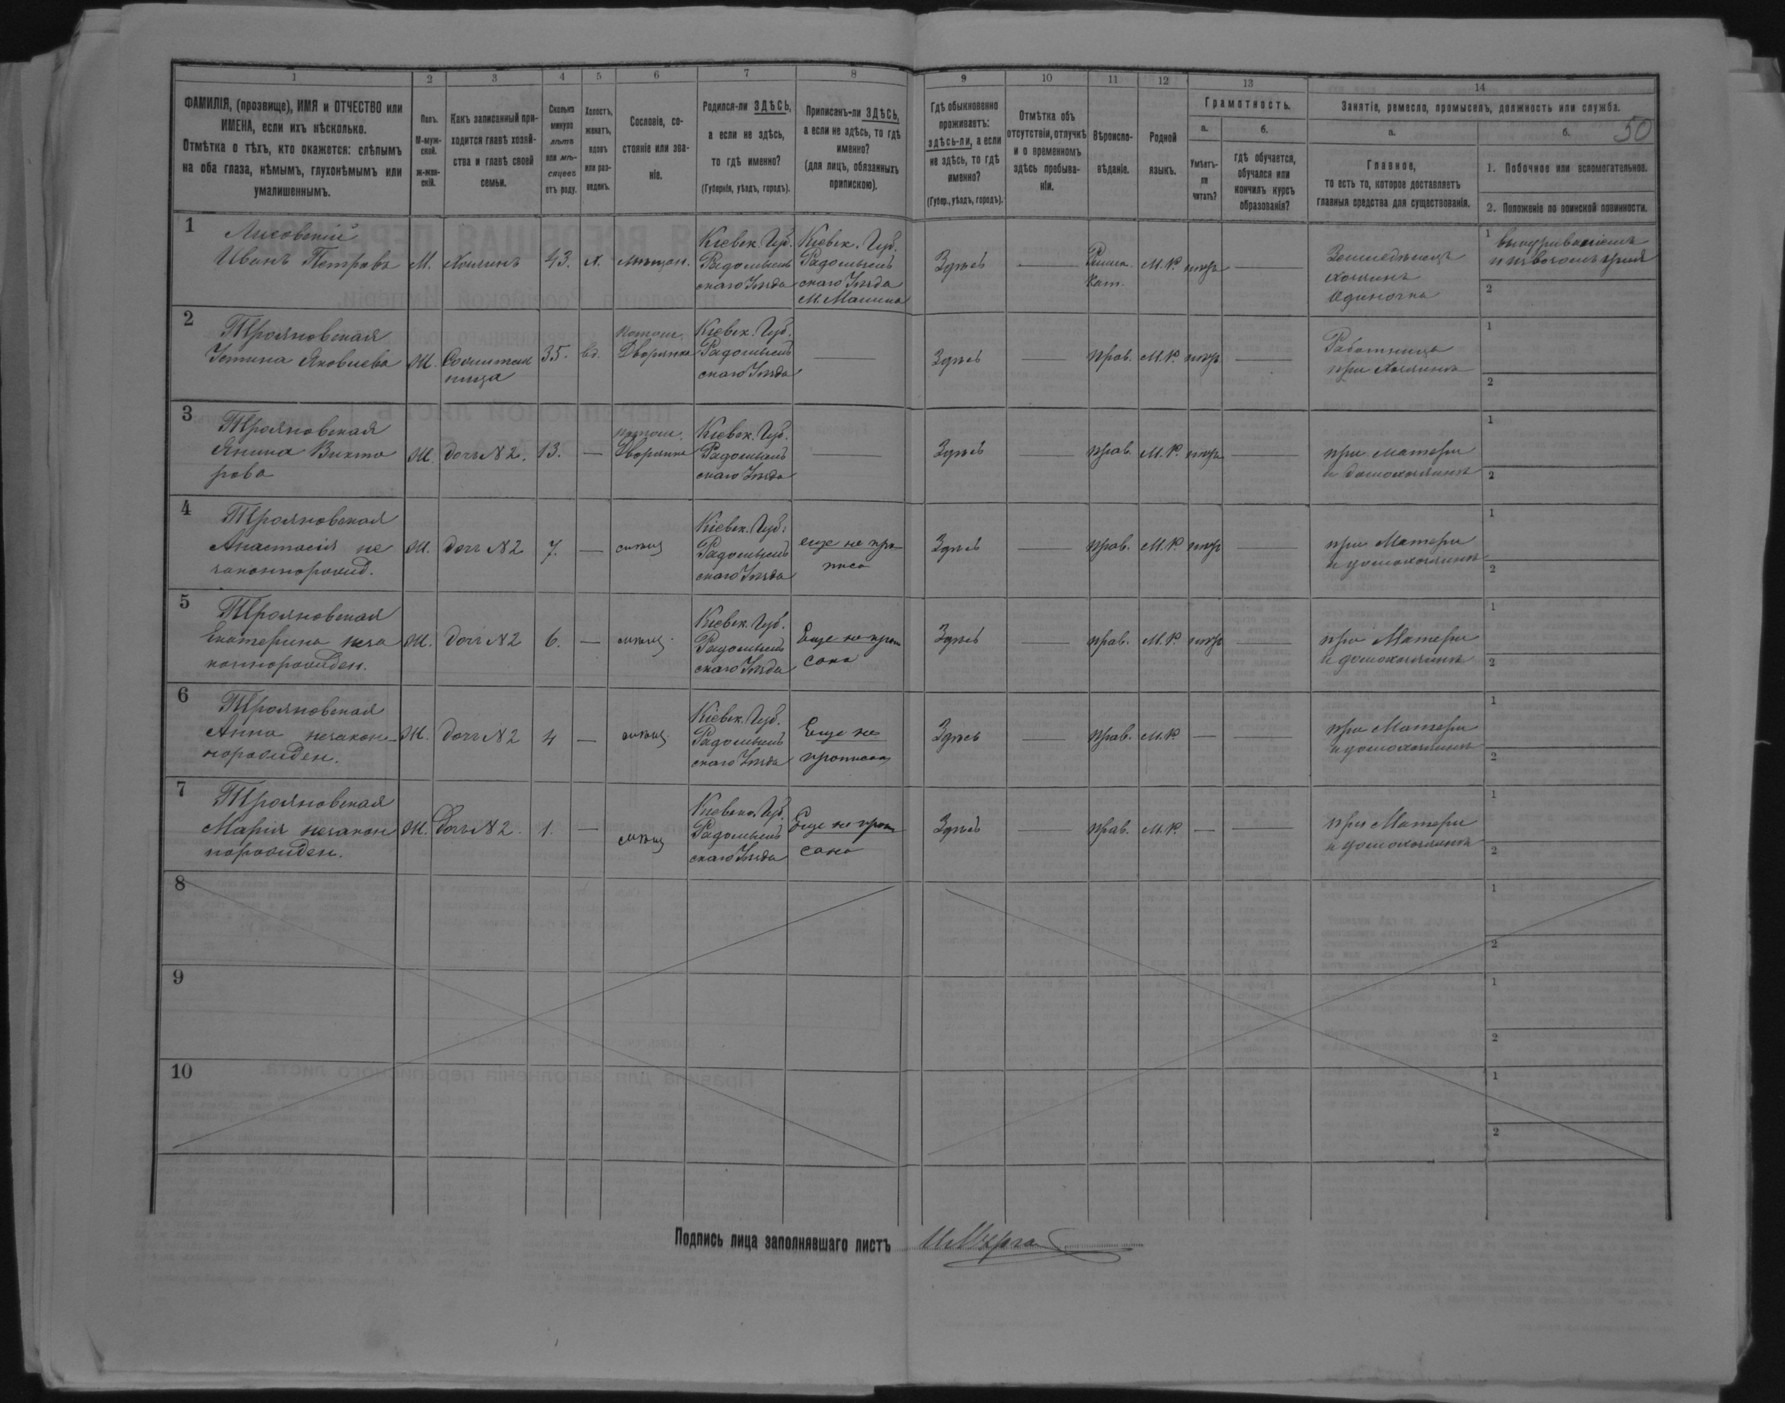 1 2 3 4 5 6 7 8 9 10 11 12 13 14
50
ФАМИЛІЯ, (прозвище), ИМЯ и ОТЧЕСТВО или
ИМЕНА, если ихъ нѣсколько.
Отмѣтка о тѣхъ, кто окажется: слѣпымъ
на оба глаза, нѣмымъ, глухонѣмымъ или
умалишеннымъ.
Полъ.
М-муж-
ской.
ж-жен-
скій.
Какъ записанный при-
ходится главѣ хозяй-
ства и главѣ своей
семьи.
Сколько
минуло
лѣтъ
или мѣ-
сяцевъ
отъ роду.
Холостъ,
женатъ,
вдовъ
или раз-
веденъ.
Сословіе, со-
стояніе или зва-
ніе.
Родился-ли ЗДѢСЬ,
а если не здѣсь,
то гдѣ именно?
(Губернія, уѣздъ, городъ).
Приписанъ-ли ЗДѢСЬ,
а если не здѣсь, то гдѣ
именно?
(для лицъ, обязанныхъ
припискою).
Гдѣ обыкновенно
проживаетъ:
здѣсь-ли, а если
не здѣсь, то гдѣ
именно?
(Губер., уѣздъ, городъ).
Отмѣтка объ
отсутствіи, отлучкѣ
и о временномъ
здѣсь пребыва-
ніи.
Вѣроиспо-
вѣданіе.
Родной
языкъ.
Грамотность.
а.
Умѣетъ-
ли
читать?
б.
гдѣ обучается,
обучался или
кончилъ курсъ
образованія?
Занятіе, ремесло, промыселъ, должность или служба.
а.
Главное,
то есть то, которое доставляетъ
главныя средства для существованія.
б.
1. Побочное или вспомогательное.
2. Положеніе по воинской повинности.
1
Иванъ Петровъ
М.
Хозяинъ
43.
х.
мѣщан.
Кіевск. Губ.
Радомысль
скаго Уѣзда
Кіевск. Губ.
Радомысль
скаго Уѣзда
м. Малина
Здѣсь
Римск.
Кат.
М.Р.
Земледѣлецъ
хозяинъ
одиночка
1
2
2
Трояновская
Устина Яковлева
Ж.
35.
вд.
потом.
Дворянка
Кіевск. Губ.
Радомысль
скаго Уѣзда
Здѣсь
прав.
М.Р.
Работница
при хозяинѣ
1
2
3
Трояновская
Викто
рова
Ж.
дочь №2.
13.
потом.
Дворянка
Кіевск. Губ.
Радомысль
скаго Уѣзда
Здѣсь
прав.
М.Р.
при матери
и домохозяинѣ
1
2
4
Трояновская
Анастасія не
законнорожд.
Ж.
дочь №2
7.
Кіевск. Губ.
Радомысль
скаго Уѣзда
еще не при
писа
Здѣсь
прав.
М.Р.
при Матери
и домохозяинѣ
1
2
5
Трояновская
Екатерина неза
коннорожден.
Ж.
дочь №2
6.
Кіевск. Губ.
Радомысль
скаго Уѣзда
Еще не припи
сана
Здѣсь
прав.
М.Р.
при Матери
и домохозяинѣ
1
2
6
Трояновская
Анна незакон-
норожден.
Ж.
дочь №2
4
Кіевск. Губ.
Радомысль
скаго Уѣзда
Еще не
Здѣсь
прав.
М.Р.
при Матери
и домохозяинѣ
1
2
7
Трояновская
Марія незакон
норожден.
Ж.
Дочь №2.
1.
Радомысль
скаго Уѣзда
Еще не припи
сана
Здѣсь
прав.
М.Р.
при Матери
и домохозяинѣ
1
2
8
1
2
9
1
2
10
1
2
Подпись лица заполнявшаго листъ